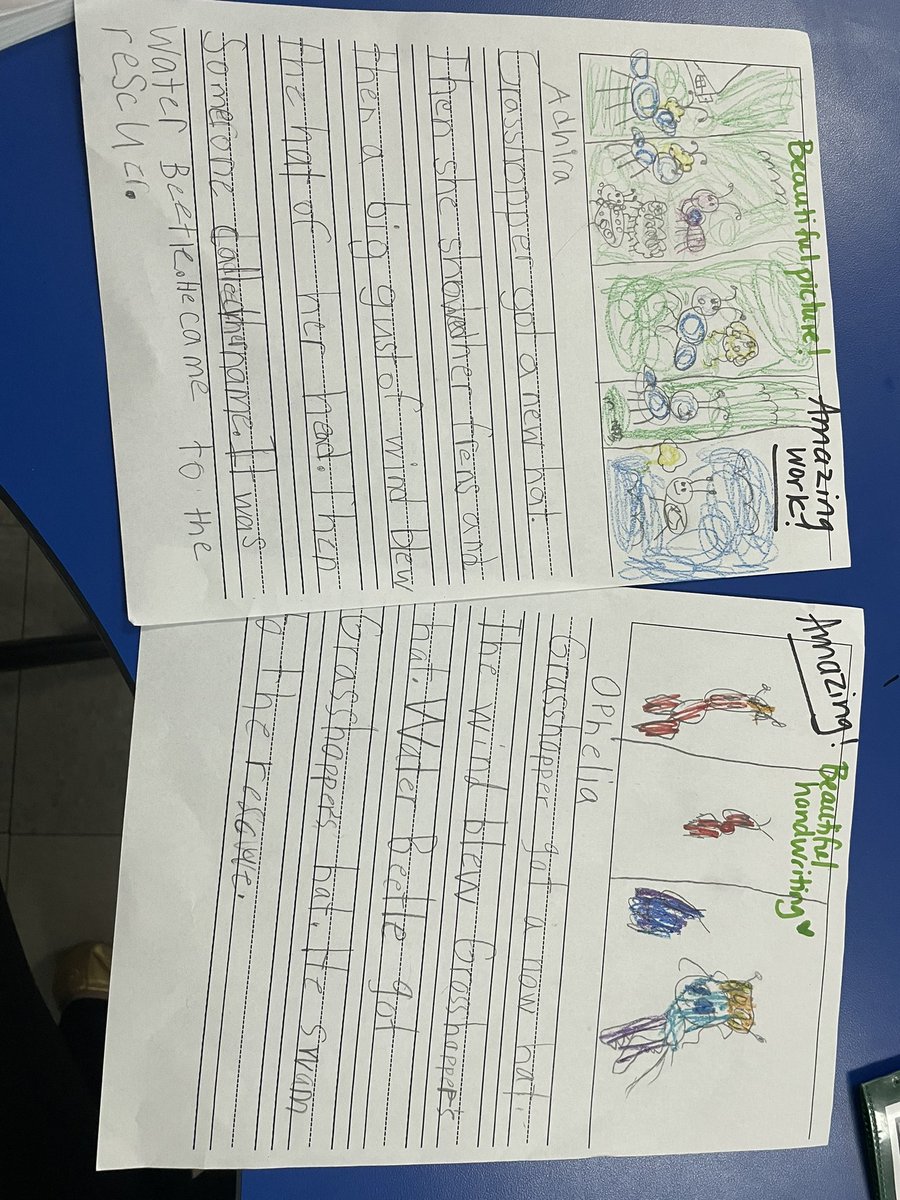 Beautiful picture!
Amazing
work!
Adhira
Grosshopper got a new hat.
Then she showed her friens and
then a big gust of wind blew
the hat of her head. Then
Someone was
Water Beetle. He came to the
rescue.
Amazing!
Beautiful
handwriting ♥
Ophelia
Grasshapper got a now hat.
The wind blew Grosshappers
hat. Water Beetle got
Grasshappers hat. He swam
to the rescue.